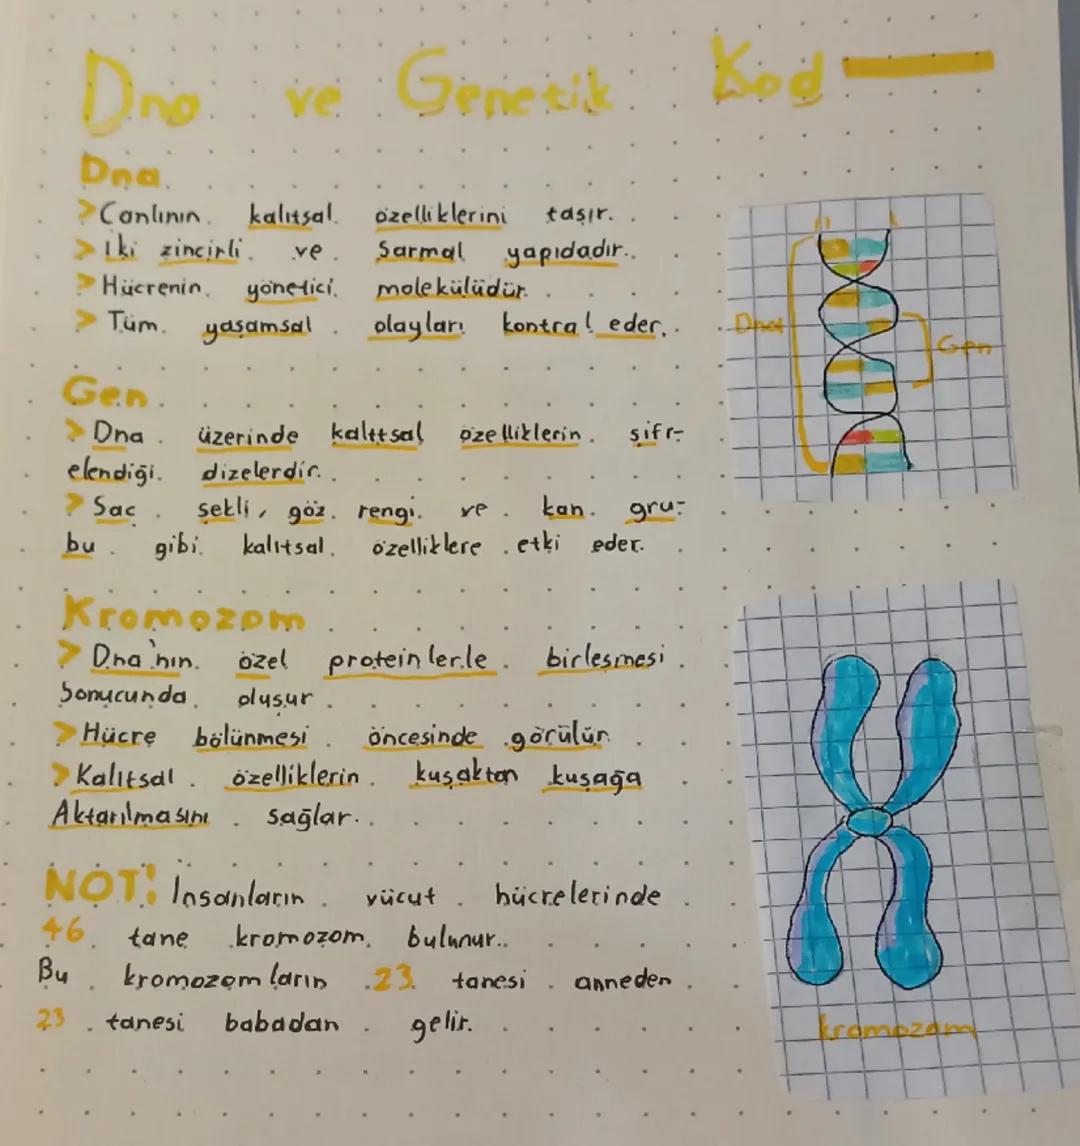 Dna ve Genetik Kod
Dna
> Canlının kalıtsal özelliklerini taşır.
> İki zincirli ve Sarmal yapıdadır.
> Hücrenin yönetici molekülüdür.
> Tüm yaşamsal olayları kontral eder.
Dna
Gen
Gen
> Dna üzerinde kalıtsal özelliklerin şifr-
elendiği dizelerdir.
> Saç şekli, göz rengi ve kan gru-
bu gibi kalıtsal özelliklere etki eder.
Kromozom
> Dna'nın özel proteinlerle birleşmesi
Sonucunda oluşur.
> Hücre bölünmesi öncesinde görülür
> Kalıtsal özelliklerin kuşaktan kuşağa
Aktarılmasını sağlar.
NOT! İnsanların vücut hücrelerinde
46 tane kromozom bulunur.
Bu kromozomların 23 tanesi anneden
23 tanesi babadan gelir.
kromozom